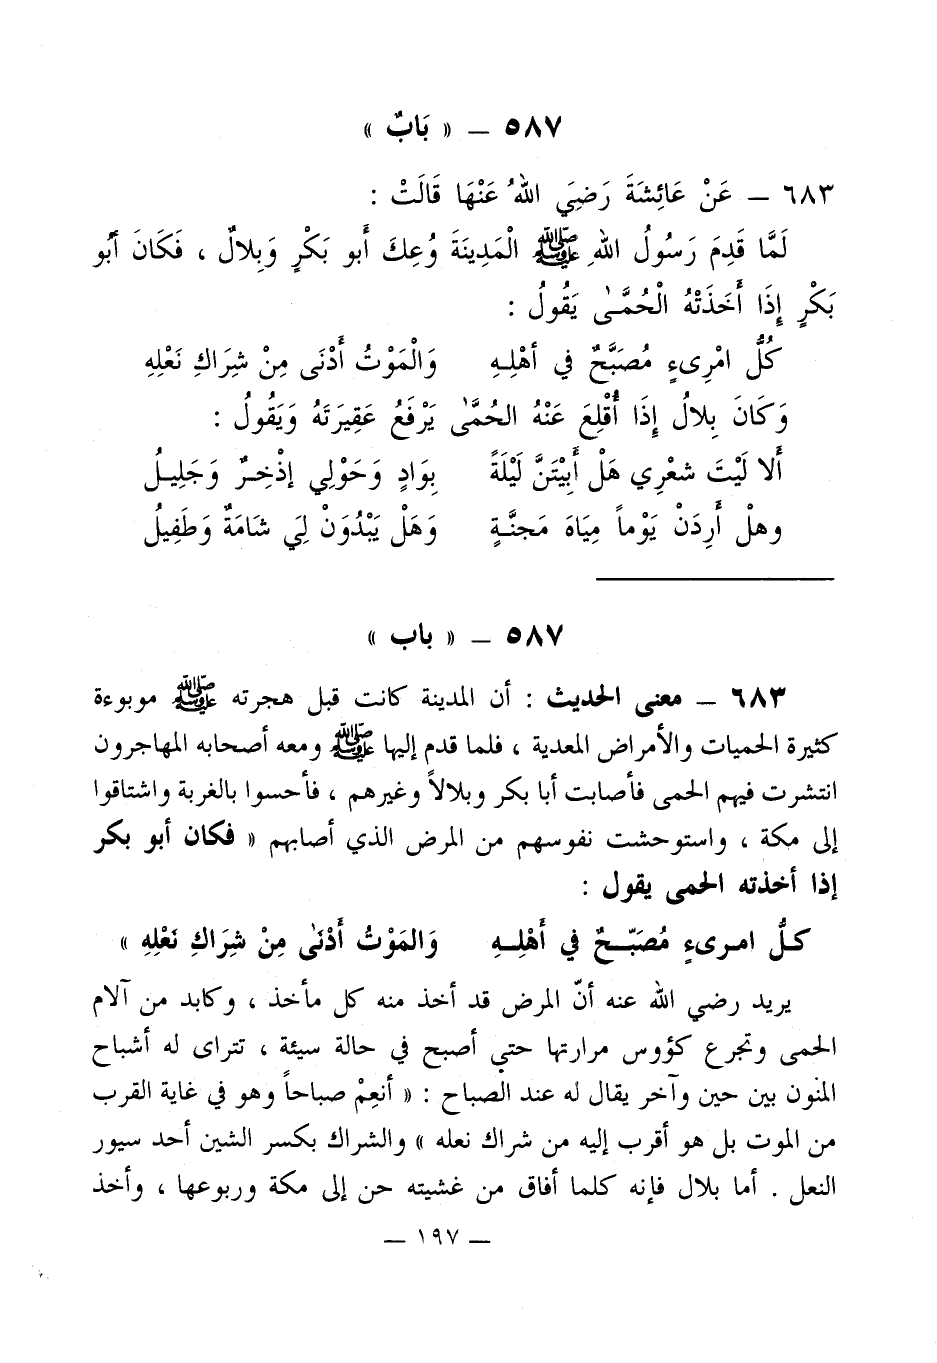 ٥٨٧ — « بَابٌ »
٦٨٣ — عَنْ عَائِشَةَ رَضِيَ اللهُ عَنْهَا قَالَتْ :
لَمَّا قَدِمَ رَسُولُ اللهِ ﷺ الْمَدِينَةَ وُعِكَ أَبو بَكْرٍ وَبِلالٌ ، فَكَانَ أَبُو
بَكْرٍ إِذَا أَخَذَتْهُ الْحُمَّىٰ يَقُولُ :
كُلُّ امْرِىءٍ مُصَبَّحٌ في أهْلِـهِ وَالْمَوْتُ أَدْنَى مِنْ شِرَاكِ نَعْلِهِ
وَكَانَ بِلالُ إِذَا أُقْلِعَ عَنْهُ الحُمَّىٰ يَرْفَعُ عَقِيرَتَهُ وَيَقُولُ :
أَلا لَيْتَ شعْرِي هَلْ أَبِيْتَنَّ لَيْلَةً بِوَادٍ وَحَوْلِي إذْخِـرٌ وَجَلِيـلُ
وهلْ أَرِدَنْ يَوْماً مِيَاهَ مَجنَّـةٍ وَهَلْ يَبْدُوَنْ لِيَ شَامَةٌ وَطَفِيلُ
٥٨٧ — « باب »
٦٨٣ — معنى الحديث : أن المدينة كانت قبل هجرته ﷺ موبوءة
كثيرة الحميات والأمراض المعدية ، فلما قدم إليها ﷺ ومعه أصحابه المهاجرون
انتشرت فيهم الحمى فأصابت أبا بكر وبلالاً وغيرهم ، فأحسوا بالغربة واشتاقوا
إلى مكة ، واستوحشت نفوسهم من المرض الذي أصابهم « فكان أبو بكر
إذا أخذته الحمى يقول :
كـلُّ امـرىءٍ مُصَبّـحٌ في أَهْلِـهِ وَالمَوْتُ أَدْنَىٰ مِنْ شِرَاكِ نَعْلِهِ »
يريد رضي الله عنه أنّ المرض قد أخذ منه كل مأخذ ، وكابد من آلام
الحمى وتجرع كؤوس مرارتها حتى أصبح في حالة سيئة ، تتراى له أشباح
المنون بين حين وآخر يقال له عند الصباح : « أنعِمْ صباحاً وهو في غاية القرب
من الموت بل هو أقرب إليه من شراك نعله » والشراك بكسر الشين أحد سيور
النعل . أما بلال فإنه كلما أفاق من غشيته حن إلى مكة وربوعها ، وأخذ
— ١٩٧ —